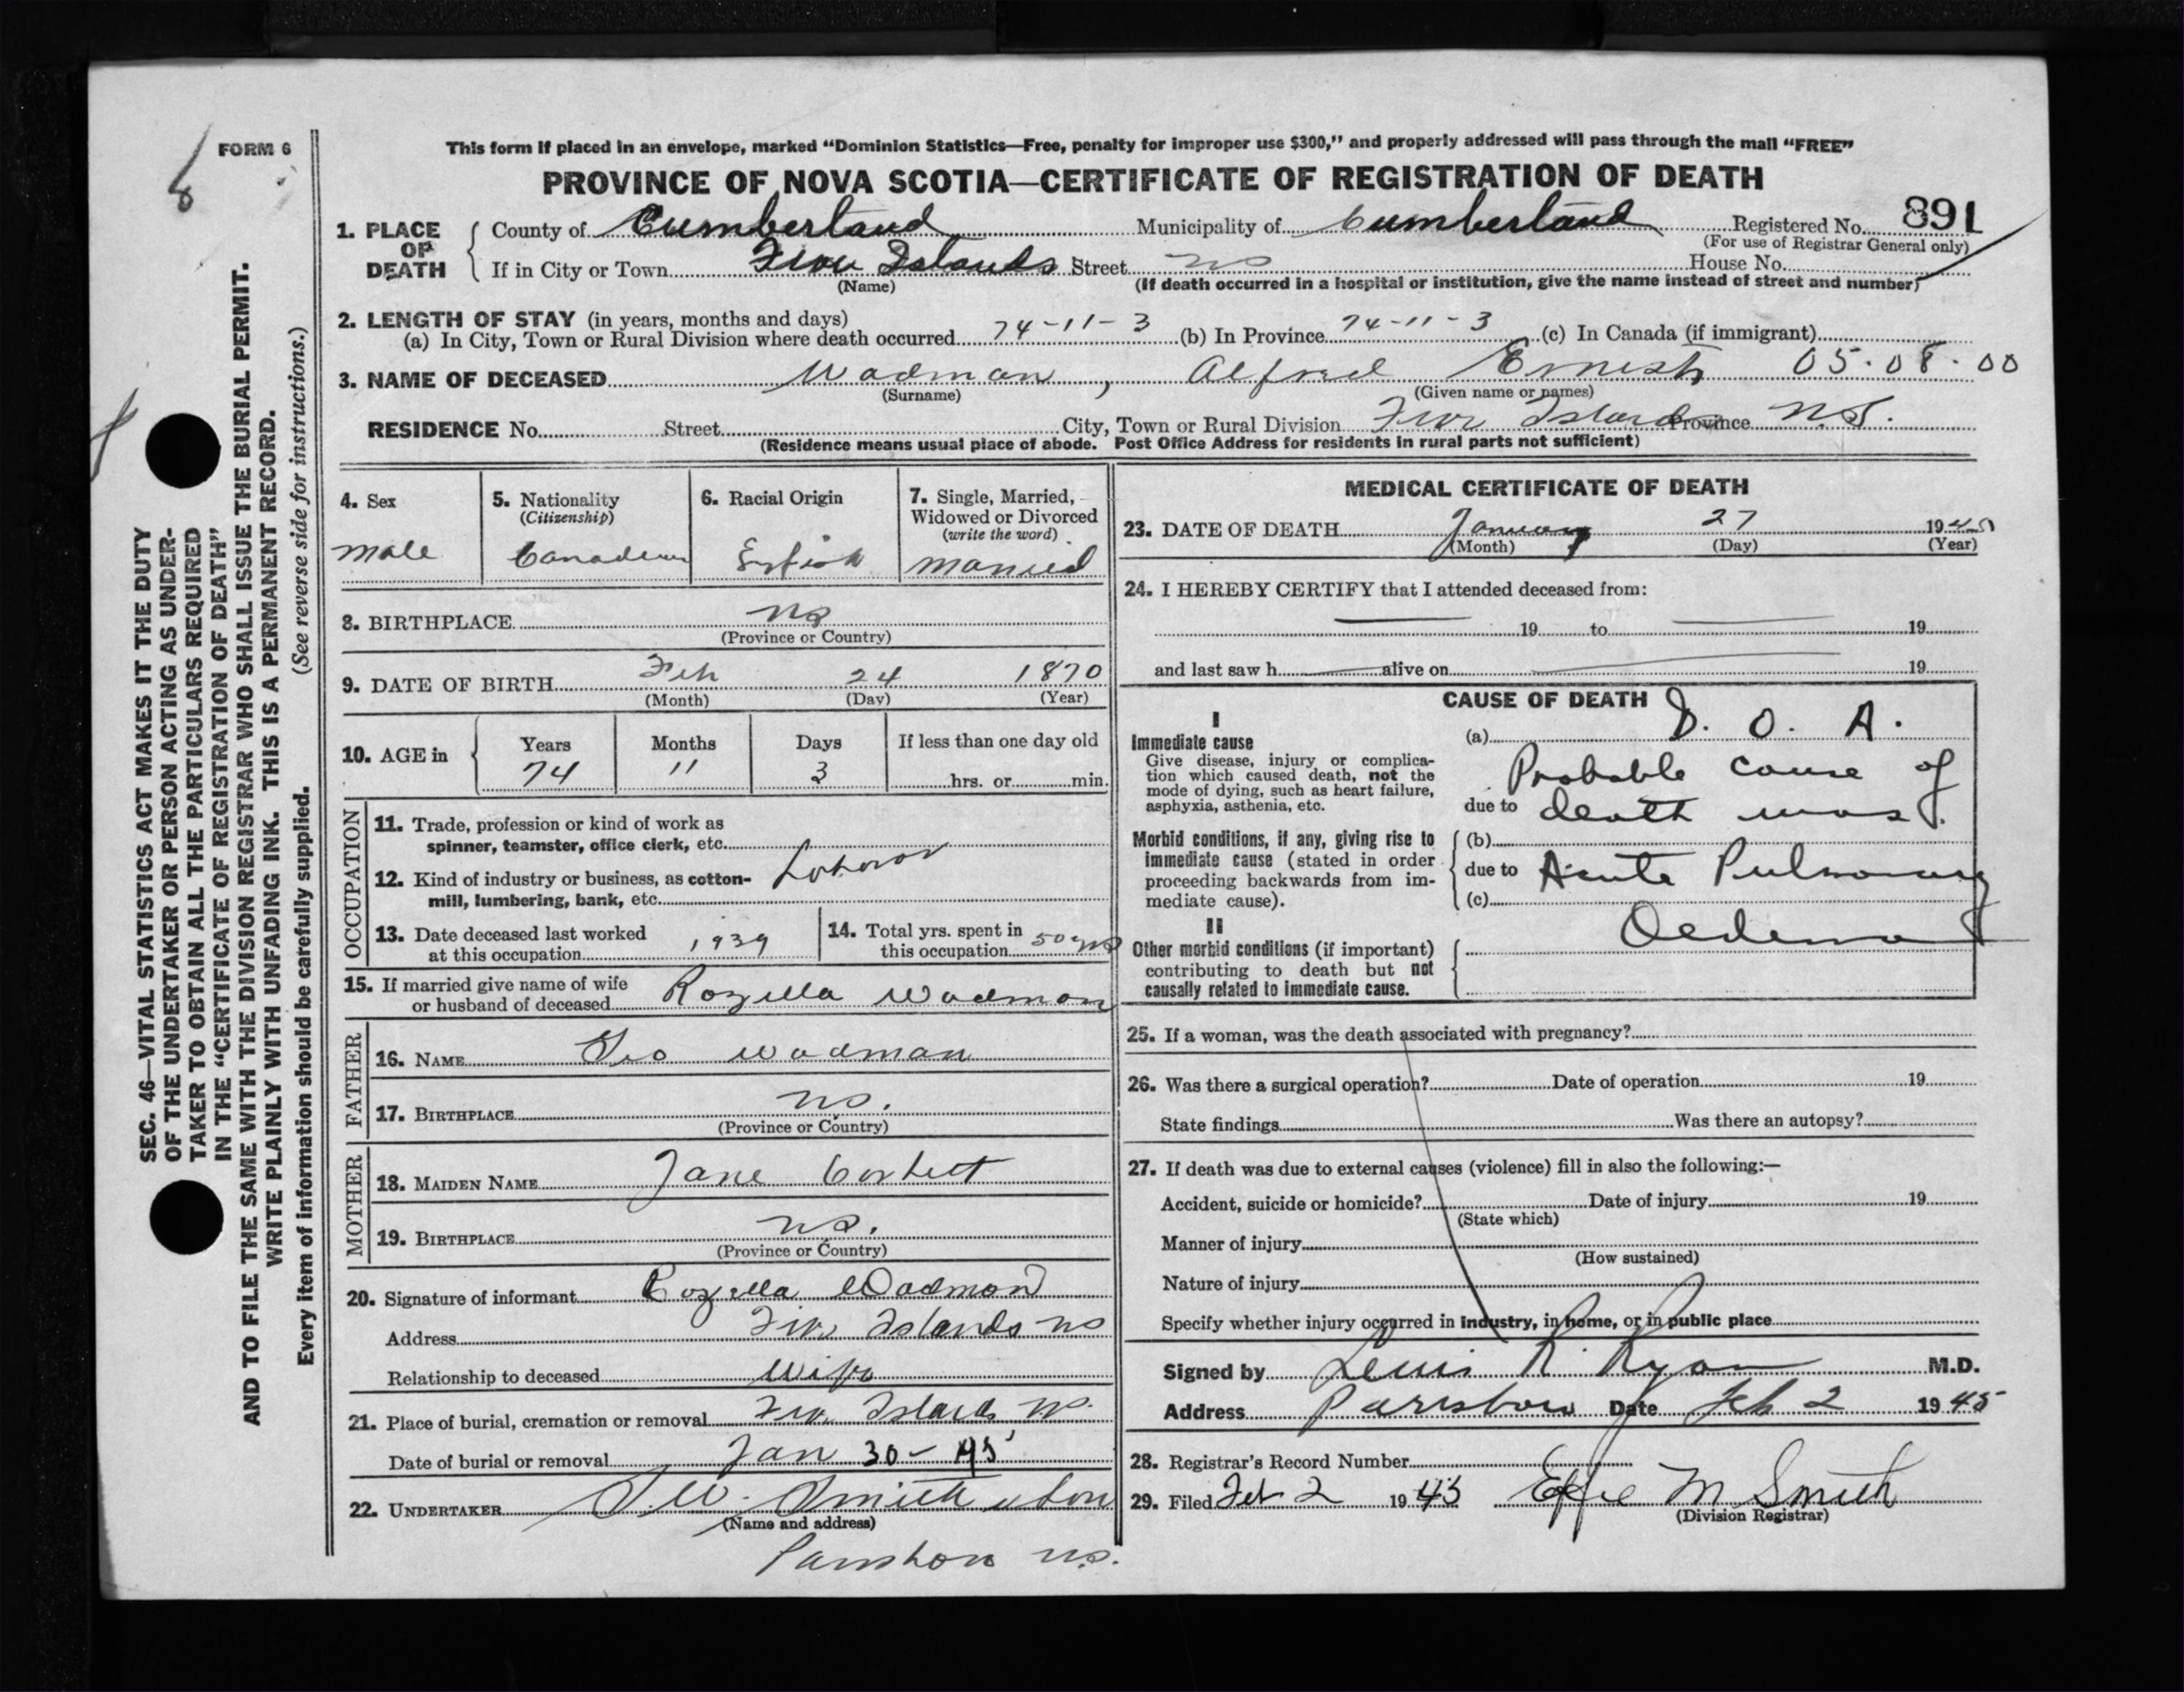 FORM 6
This form if placed in an envelope, marked “Dominion Statistics—Free, penalty for improper use $300,” and properly addressed will pass through the mail “FREE”
PROVINCE OF NOVA SCOTIA—CERTIFICATE OF REGISTRATION OF DEATH
1. PLACE OF DEATH County of Cumberland Municipality of Cumberland Registered No. 891
(For use of Registrar General only)
If in City or Town Five Islands Street ns House No.
(Name) (If death occurred in a hospital or institution, give the name instead of street and number)
2. LENGTH OF STAY (in years, months and days)
(a) In City, Town or Rural Division where death occurred 74-11-3 (b) In Province 74-11-3 (c) In Canada (if immigrant)
3. NAME OF DECEASED Wadman, Alfred Ernest 05.08.00
(Surname) (Given name or names)
RESIDENCE No. Street City, Town or Rural Division Five Islands Province N.S.
(Residence means usual place of abode. Post Office Address for residents in rural parts not sufficient)
4. Sex
male
5. Nationality
(Citizenship)
Canadian
6. Racial Origin
English
7. Single, Married,
Widowed or Divorced
(write the word)
married
8. BIRTHPLACE ns
(Province or Country)
9. DATE OF BIRTH Feb 24 1870
(Month) (Day) (Year)
10. AGE in Years Months Days If less than one day old
74 11 3 hrs. or min.
OCCUPATION
11. Trade, profession or kind of work as
spinner, teamster, office clerk, etc.
Laborer
12. Kind of industry or business, as cotton-
mill, lumbering, bank, etc.
13. Date deceased last worked
at this occupation 1939
14. Total yrs. spent in
this occupation 50 yrs
15. If married give name of wife
or husband of deceased Rozella Wadman
FATHER
16. NAME Geo Wadman
17. BIRTHPLACE ns.
(Province or Country)
MOTHER
18. MAIDEN NAME Jane Corbett
19. BIRTHPLACE ns.
(Province or Country)
20. Signature of informant Rozella Wadman
Address Five Islands ns
Relationship to deceased Wife
21. Place of burial, cremation or removal Five Islands ns.
Date of burial or removal Jan 30-45
22. UNDERTAKER Smith & Son
(Name and address)
Parrsboro n.s.
MEDICAL CERTIFICATE OF DEATH
23. DATE OF DEATH January 27 1945
(Month) (Day) (Year)
24. I HEREBY CERTIFY that I attended deceased from:
19 to 19
and last saw h alive on 19
CAUSE OF DEATH
I
Immediate cause
Give disease, injury or complica-
tion which caused death, not the
mode of dying, such as heart failure,
asphyxia, asthenia, etc.
(a) D. O. A.
Probable cause of
due to death was
Morbid conditions, if any, giving rise to
immediate cause (stated in order
proceeding backwards from im-
mediate cause).
(b)
due to Acute Pulmonary
(c)
Oedema
II
Other morbid conditions (if important)
contributing to death but not
causally related to immediate cause.
25. If a woman, was the death associated with pregnancy?
26. Was there a surgical operation? Date of operation 19
State findings Was there an autopsy?
27. If death was due to external causes (violence) fill in also the following:—
Accident, suicide or homicide? Date of injury 19
(State which)
Manner of injury
(How sustained)
Nature of injury
Specify whether injury occurred in industry, in home, or in public place
Signed by Lewis R. Ryan M.D.
Address Parrsboro Date Feb 2 1945
28. Registrar's Record Number
29. Filed Feb 2 1945 Effie M Smith
(Division Registrar)
SEC. 46—VITAL STATISTICS ACT MAKES IT THE DUTY
OF THE UNDERTAKER OR PERSON ACTING AS UNDER-
TAKER TO OBTAIN ALL THE PARTICULARS REQUIRED
IN THE “CERTIFICATE OF REGISTRATION OF DEATH”
AND TO FILE THE SAME WITH THE DIVISION REGISTRAR WHO SHALL ISSUE THE BURIAL PERMIT.
WRITE PLAINLY WITH UNFADING INK. THIS IS A PERMANENT RECORD.
Every item of information should be carefully supplied. (See reverse side for instructions.)